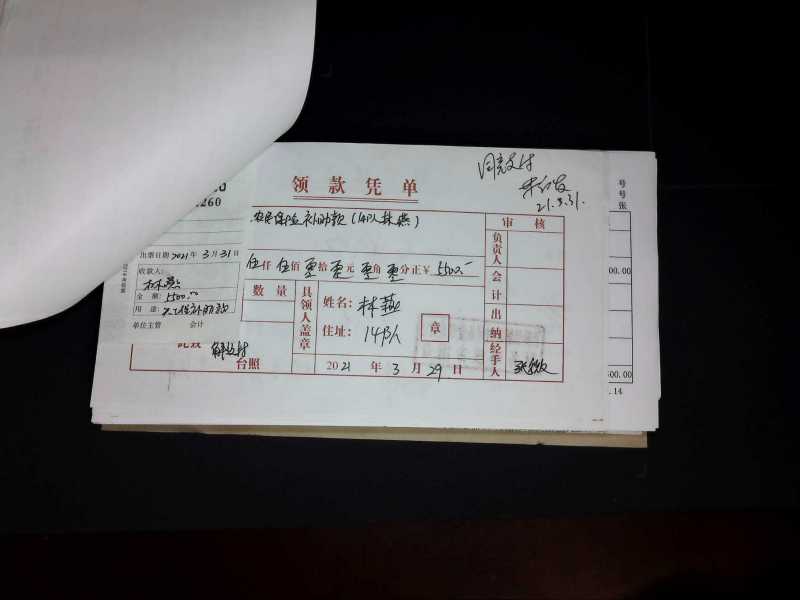 同意支付
21.3.31.
领款凭单
260
号
号
张
农民保险补助款(14队林燕)
审核
负责人
会计
出纳
经手人
伍仟伍佰零拾零元零角零分正¥5500.—
出票日期2021年3月31日
收款人:
林燕
金额:5500.00
用途:
单位主管 会计
数量
具领人盖章
姓名:林燕
住址:14队
章
台照
2021年3月29日
00.00
500.00
.14